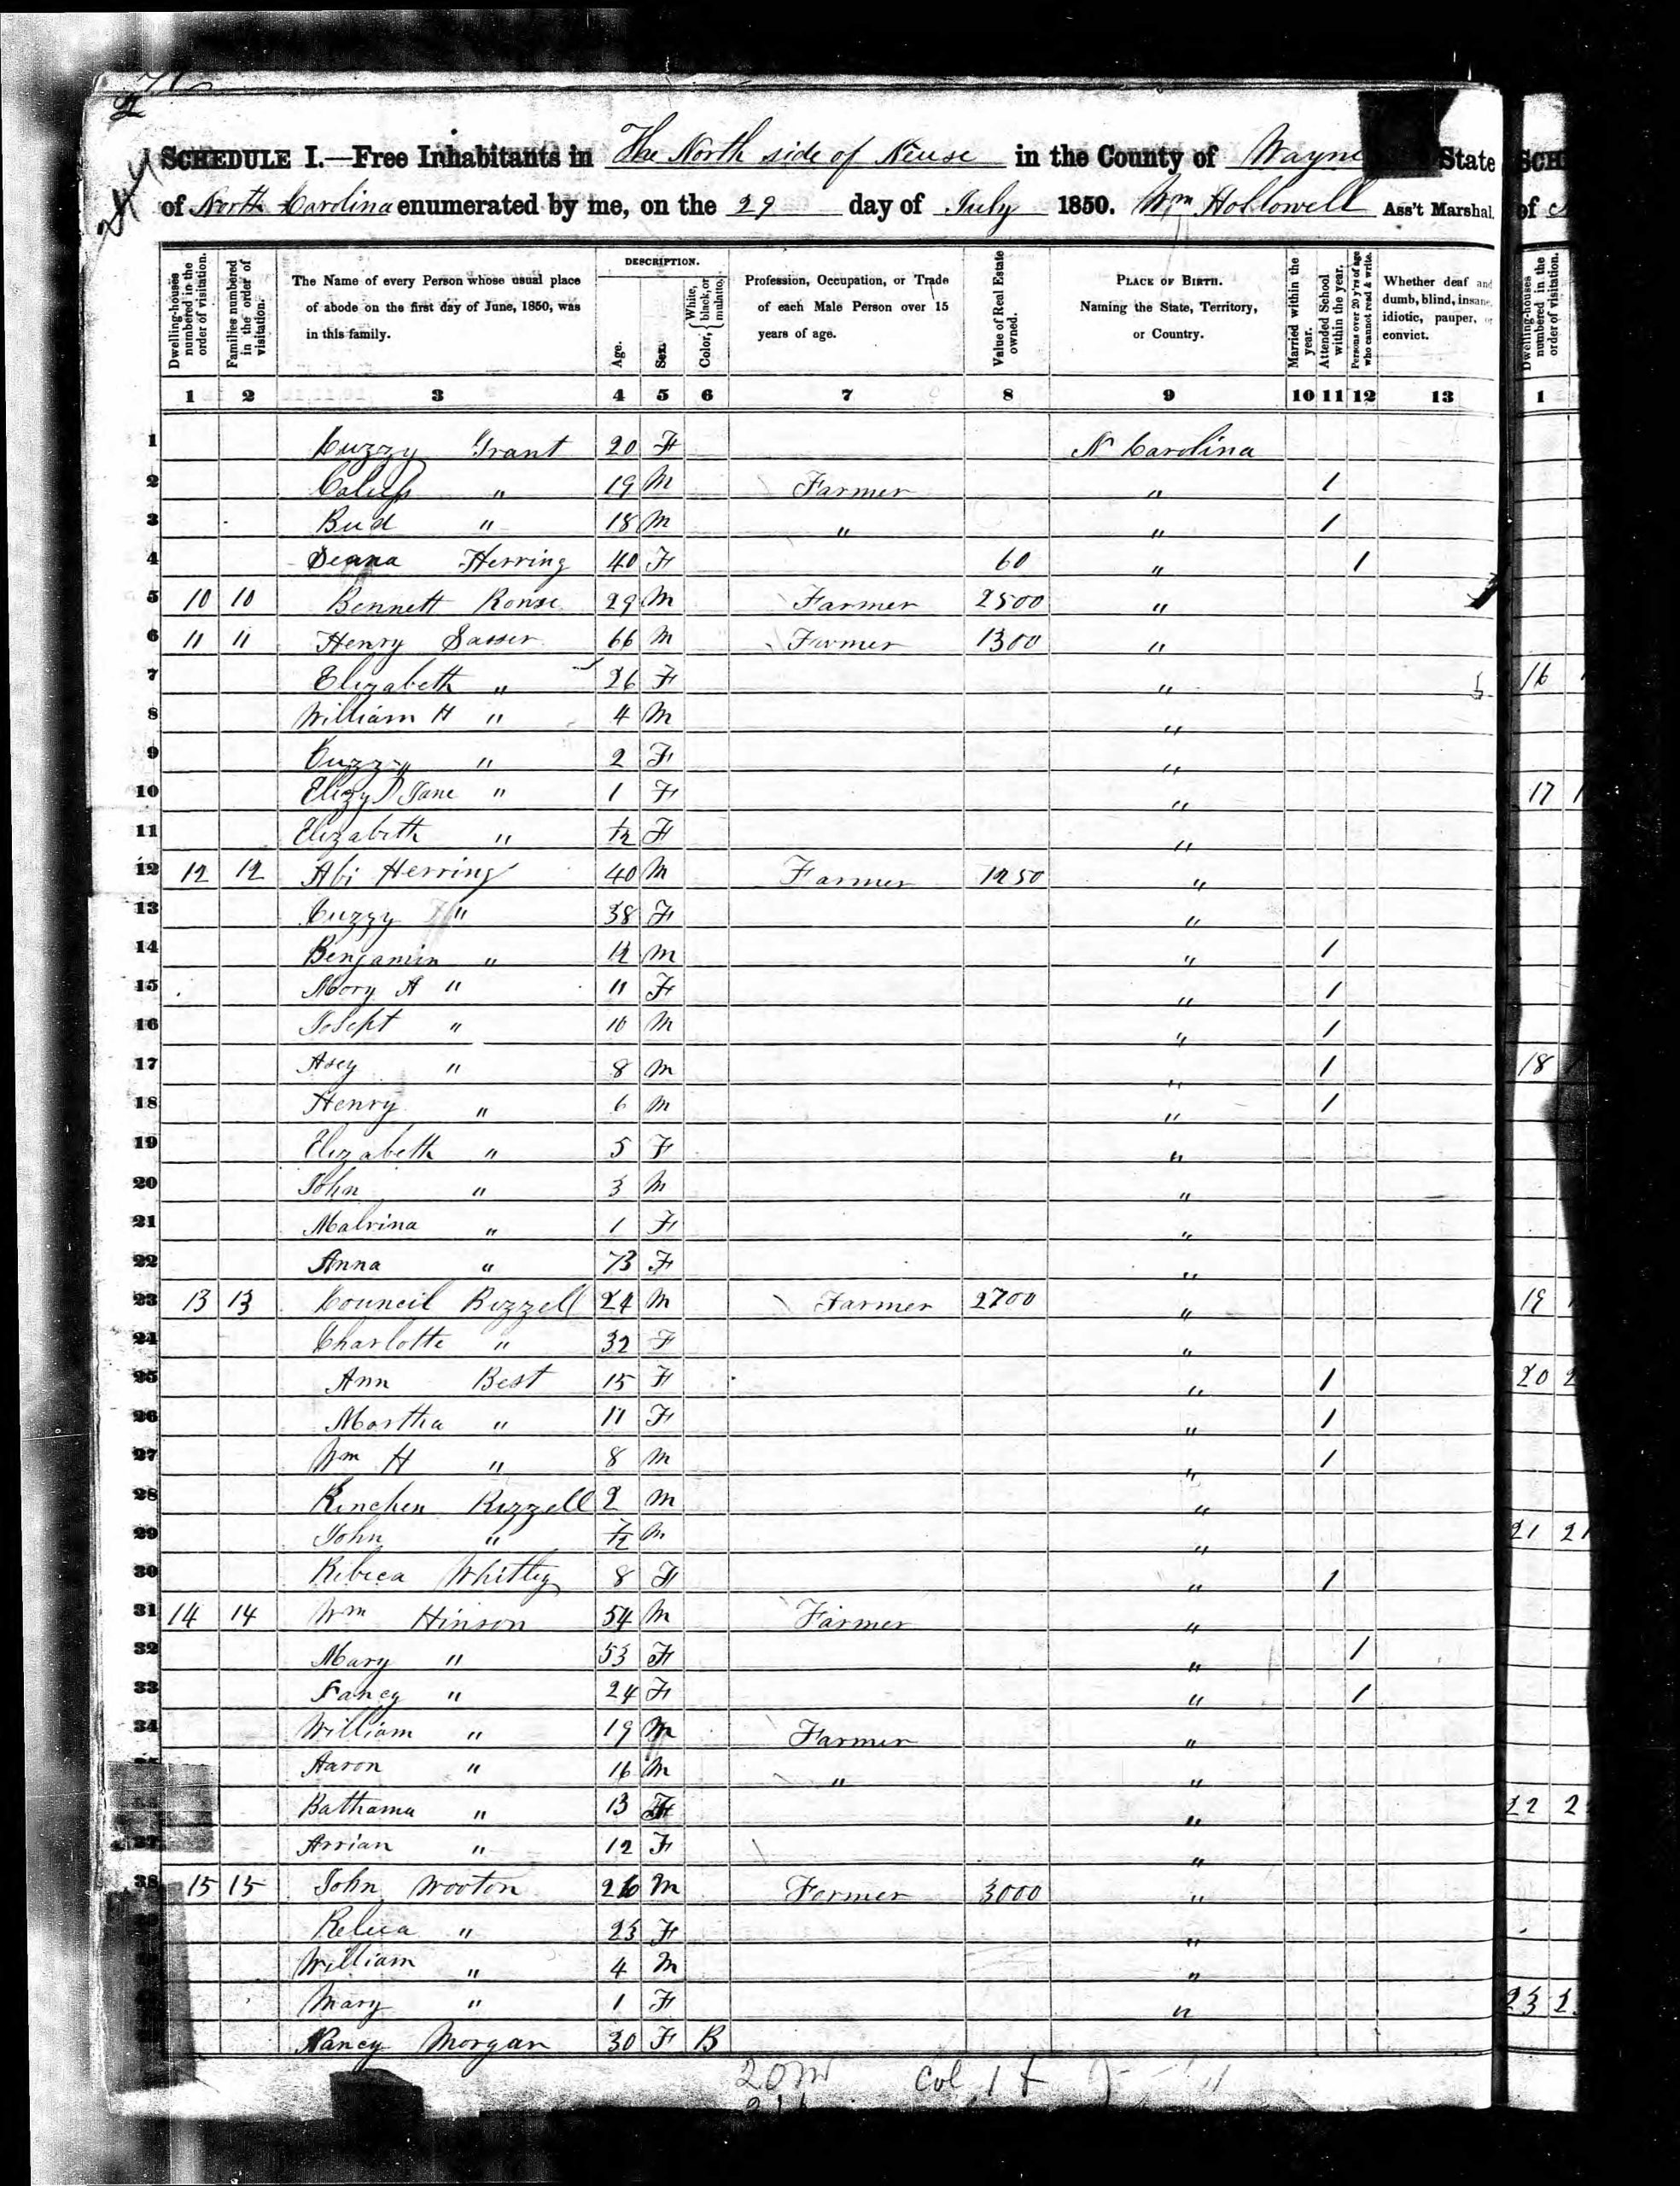 SCHEDULE I.—Free Inhabitants in The North side of Neuse in the County of Wayne State
of North Carolina enumerated by me, on the 29 day of July 1850. Wm Hollowell Ass't Marshal.
Dwelling-houses numbered in the order of visitation. Families numbered in the order of visitation. The Name of every Person whose usual place of abode on the first day of June, 1850, was in this family. DESCRIPTION. Age. Sex. Color, { White, black, or mulatto. Profession, Occupation, or Trade of each Male Person over 15 years of age. Value of Real Estate owned. PLACE OF BIRTH. Naming the State, Territory, or Country. Married within the year. Attended School within the year. Persons over 20 y'rs of age who cannot read & write. Whether deaf and dumb, blind, insane, idiotic, pauper, or convict.
1 2 3 4 5 6 7 8 9 10 11 12 13
1 Cuzzy Grant 20 F N Carolina
2 " 19 M Farmer " 1
3 Bud " 18 M " " 1
4 Herring 40 F 60 " 1
5 10 10 Bennett 29 M Farmer 2500 "
6 11 11 Henry Sasser 66 M Farmer 1300 "
7 Elizabeth " 26 F "
8 William H " 4 M "
9 Cuzzy " 2 F "
10 Elizy Jane " 1 F "
11 Elizabeth " F "
12 12 12 Abi Herring 40 M Farmer 1250 "
13 Cuzzy " 38 F "
14 Benjamin " 12 M " 1
15 Mary A " 11 F " 1
16 Joseph " 10 M " 1
17 Asey " 8 M " 1
18 Henry " 6 M " 1
19 Elizabeth " 5 F "
20 John " 3 M "
21 Malvina " 1 F "
22 Anna " 73 F "
23 13 13 Council Bizzell 24 M Farmer 2700 "
24 Charlotte " 32 F "
25 Ann Best 15 F " 1
26 Martha " 11 F " 1
27 Wm H " 8 M " 1
28 Kinchen Bizzell 2 M "
29 John " 7/12 M "
30 Rebeca Whitley 8 F " 1
31 14 14 Wm Hinson 54 M Farmer "
32 Mary " 53 F " 1
33 Fancy " 24 F " 1
34 William " 19 M Farmer "
35 Aaron " 16 M " "
Bathama " 13 F "
37 Arrian " 12 F "
38 15 15 John Wooton 26 M Farmer 3000 "
Rebeca " 23 F "
William " 4 M "
Mary " 1 F "
Nancy Morgan 30 F B
20 M Col 1 f
SCH
of
Dwelling-houses numbered in the order of visitation.
1
16
17
18
19
20 2
21 21
22 2
23 2